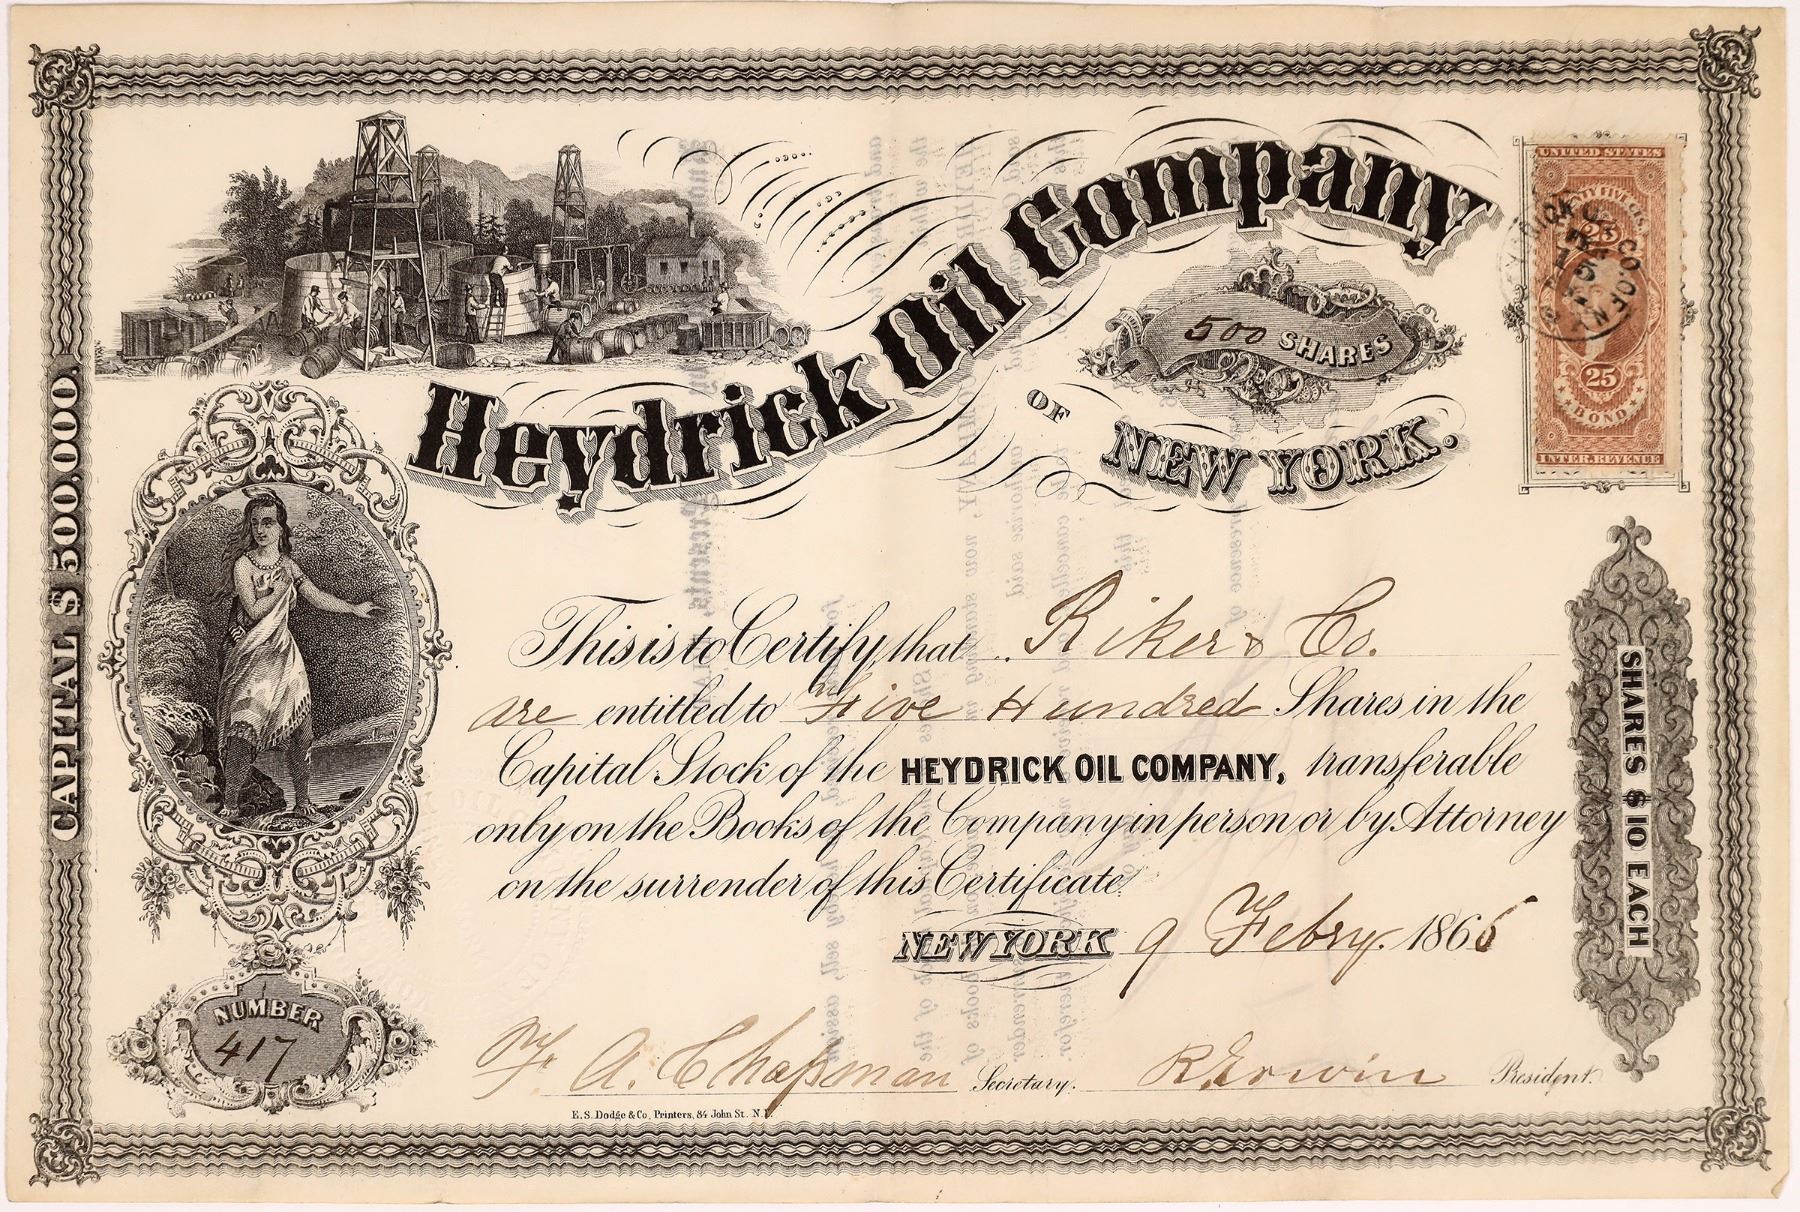 Heydrick Oil Company
500 SHARES
OF
NEW YORK.
UNITED STATES
25
25
BOND
INTER. REVENUE
CAPITAL $500.000.
This is to Certify, that Riker & Co.
are entitled to Five Hundred Shares in the
Capital Stock of the HEYDRICK OIL COMPANY, transferable
only on the Books of the Company in person or by Attorney
on the surrender of this Certificate.
NEW YORK 9 Febry. 1865
SHARES $10 EACH
NUMBER
417
F. A. Chapman Secretary. R Erwin President.
E. S. Dodge & Co, Printers, 84 John St. N.Y.